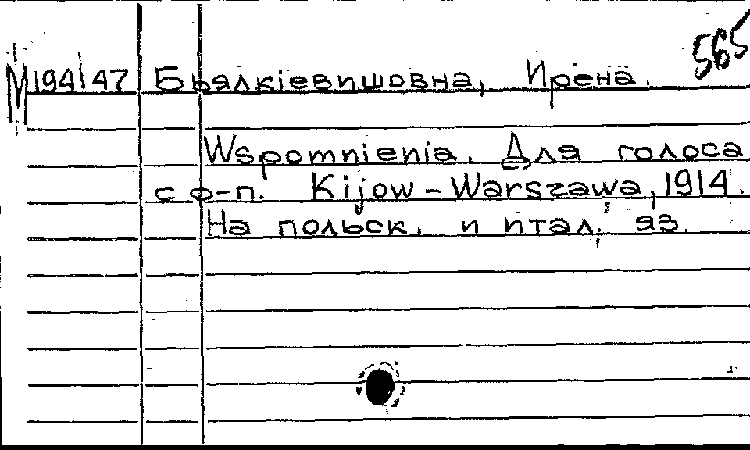 565
М 194/47 Бьялкiевишовна, Ирена.
Wspomnienia. Для голоса
с ф-п. Kijow - Warszawa, 1914.
На польск. и итал. яз.